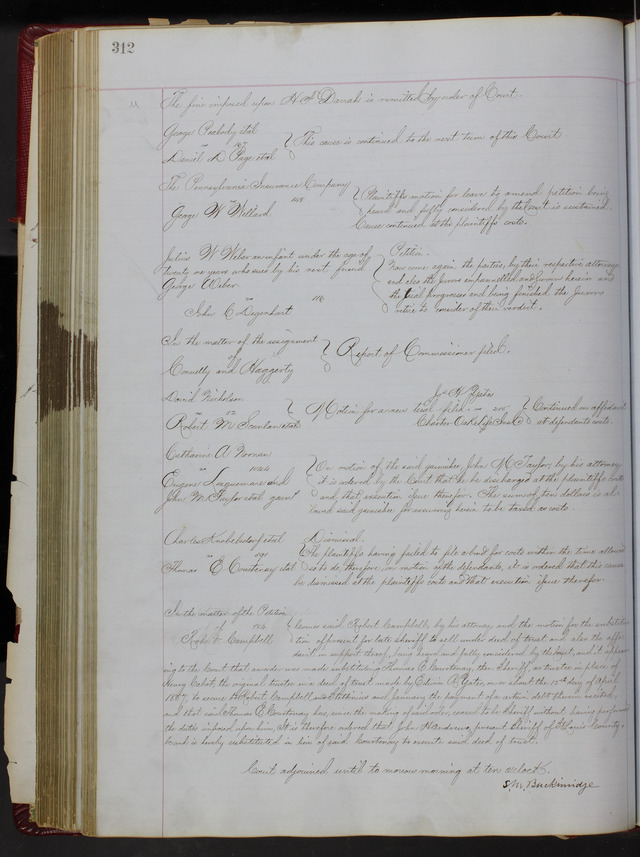 312
The fine imposed upon H A Danah is remitted by order of Court.
George Peabody et al
vs
Daniel D Page et al
This cause is continued to the next term of this Court
The Pennsylvania Insurance Company
vs
George W Willard
Plaintiffs motion for leave to amend petition being
heard and fully considered by the Court is sustained.
Cause continued at the plaintiffs costs.
Julius W Weber an infant under the age of
twenty one years who sues by his next friend
George Weber
vs
John C Degenhart
Petition.
Now come again the parties, by their respective attorneys
and also the jurors impannelled and sworn herein and
the trial progresses and being finished the Jurors
retire to consider of their verdict.
In the matter of the assignment
of
Connelly and Haggerty
Report of Commissioner filed.
David Nicholson
vs
Robert M Scanlan et al
Motion for a new trial filed.
Jas H Yeates
vs
Charter Oak Life Ins Co
Continued on affidavit
at defendants costs.
Catharine A
vs
Eugene and
John M Taylor et al garn
On motion of the said garnishee, John M Taylor, by his attorney
it is ordered by the Court that he be discharged at the plaintiffs costs
and, that, execution issue therefor. The sum of ten dollars is al-
lowed said garnishee for answering herein to be taxed as costs.
Charles et al
vs
Thomas E Courtenay et al
Dismissal.
The plaintiffs having failed to file a bond for costs within the time allowed
so to do, therefore, on motion of the defendants, it is ordered that this cause
be dismissed at the plaintiffs costs and that execution issue therefor.
In the matter of the Petition
of
Robt Campbell
Comes said Robert Campbell, by his attorney and the motion for the substitu-
tion of present for late sheriff to sell under deed of trust and also the affi-
davit in support thereof, being heard and fully considered by the Court, and it appear-
ing to the Court that an order was made substituting Thomas E Courtenay then Sheriff, as trustee in place of
Henry the original trustee in a deed of trust made by Edwin R Yeats, on or about the 15th day of April
1857, to secure to Robert Campbell and the payment of a certain debt therein recited,
and that said Thomas E Courtenay has, since the making of said order, ceased to be Sheriff without having performed
the duties imposed upon him, It is therefore ordered that John H Andrews, present Sheriff of St Louis County,
be and is hereby substituted in lieu of said Courtenay to execute said deed of trust.
Court adjourned until to morrow morning at ten o'clock.
S. M. Buckinridge